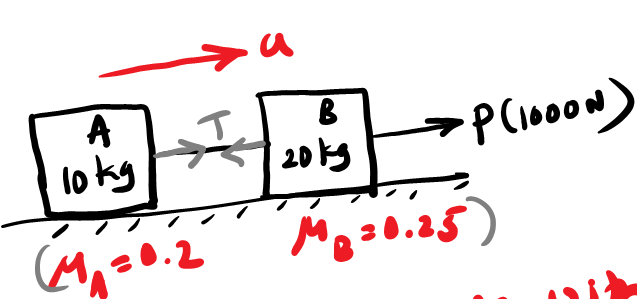 a
A
10 kg
T
B
20 kg
P(1000N)
(μA=0.2
μB=0.25)